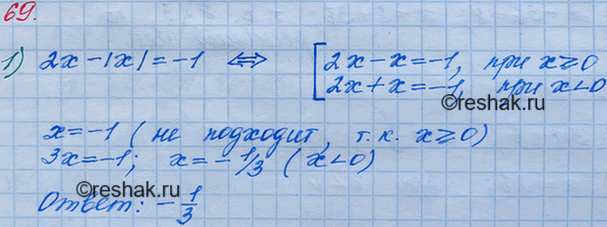 69.
1) 2x-|x|=-1 ⇔ [2x-x=-1, при x≥0
2x+x=-1, при x<0
©reshak.ru
x=-1 (не подходит, т.к. x≥0)
3x=-1; x=-1/3 (x<0)
©reshak.ru
Ответ: -1/3